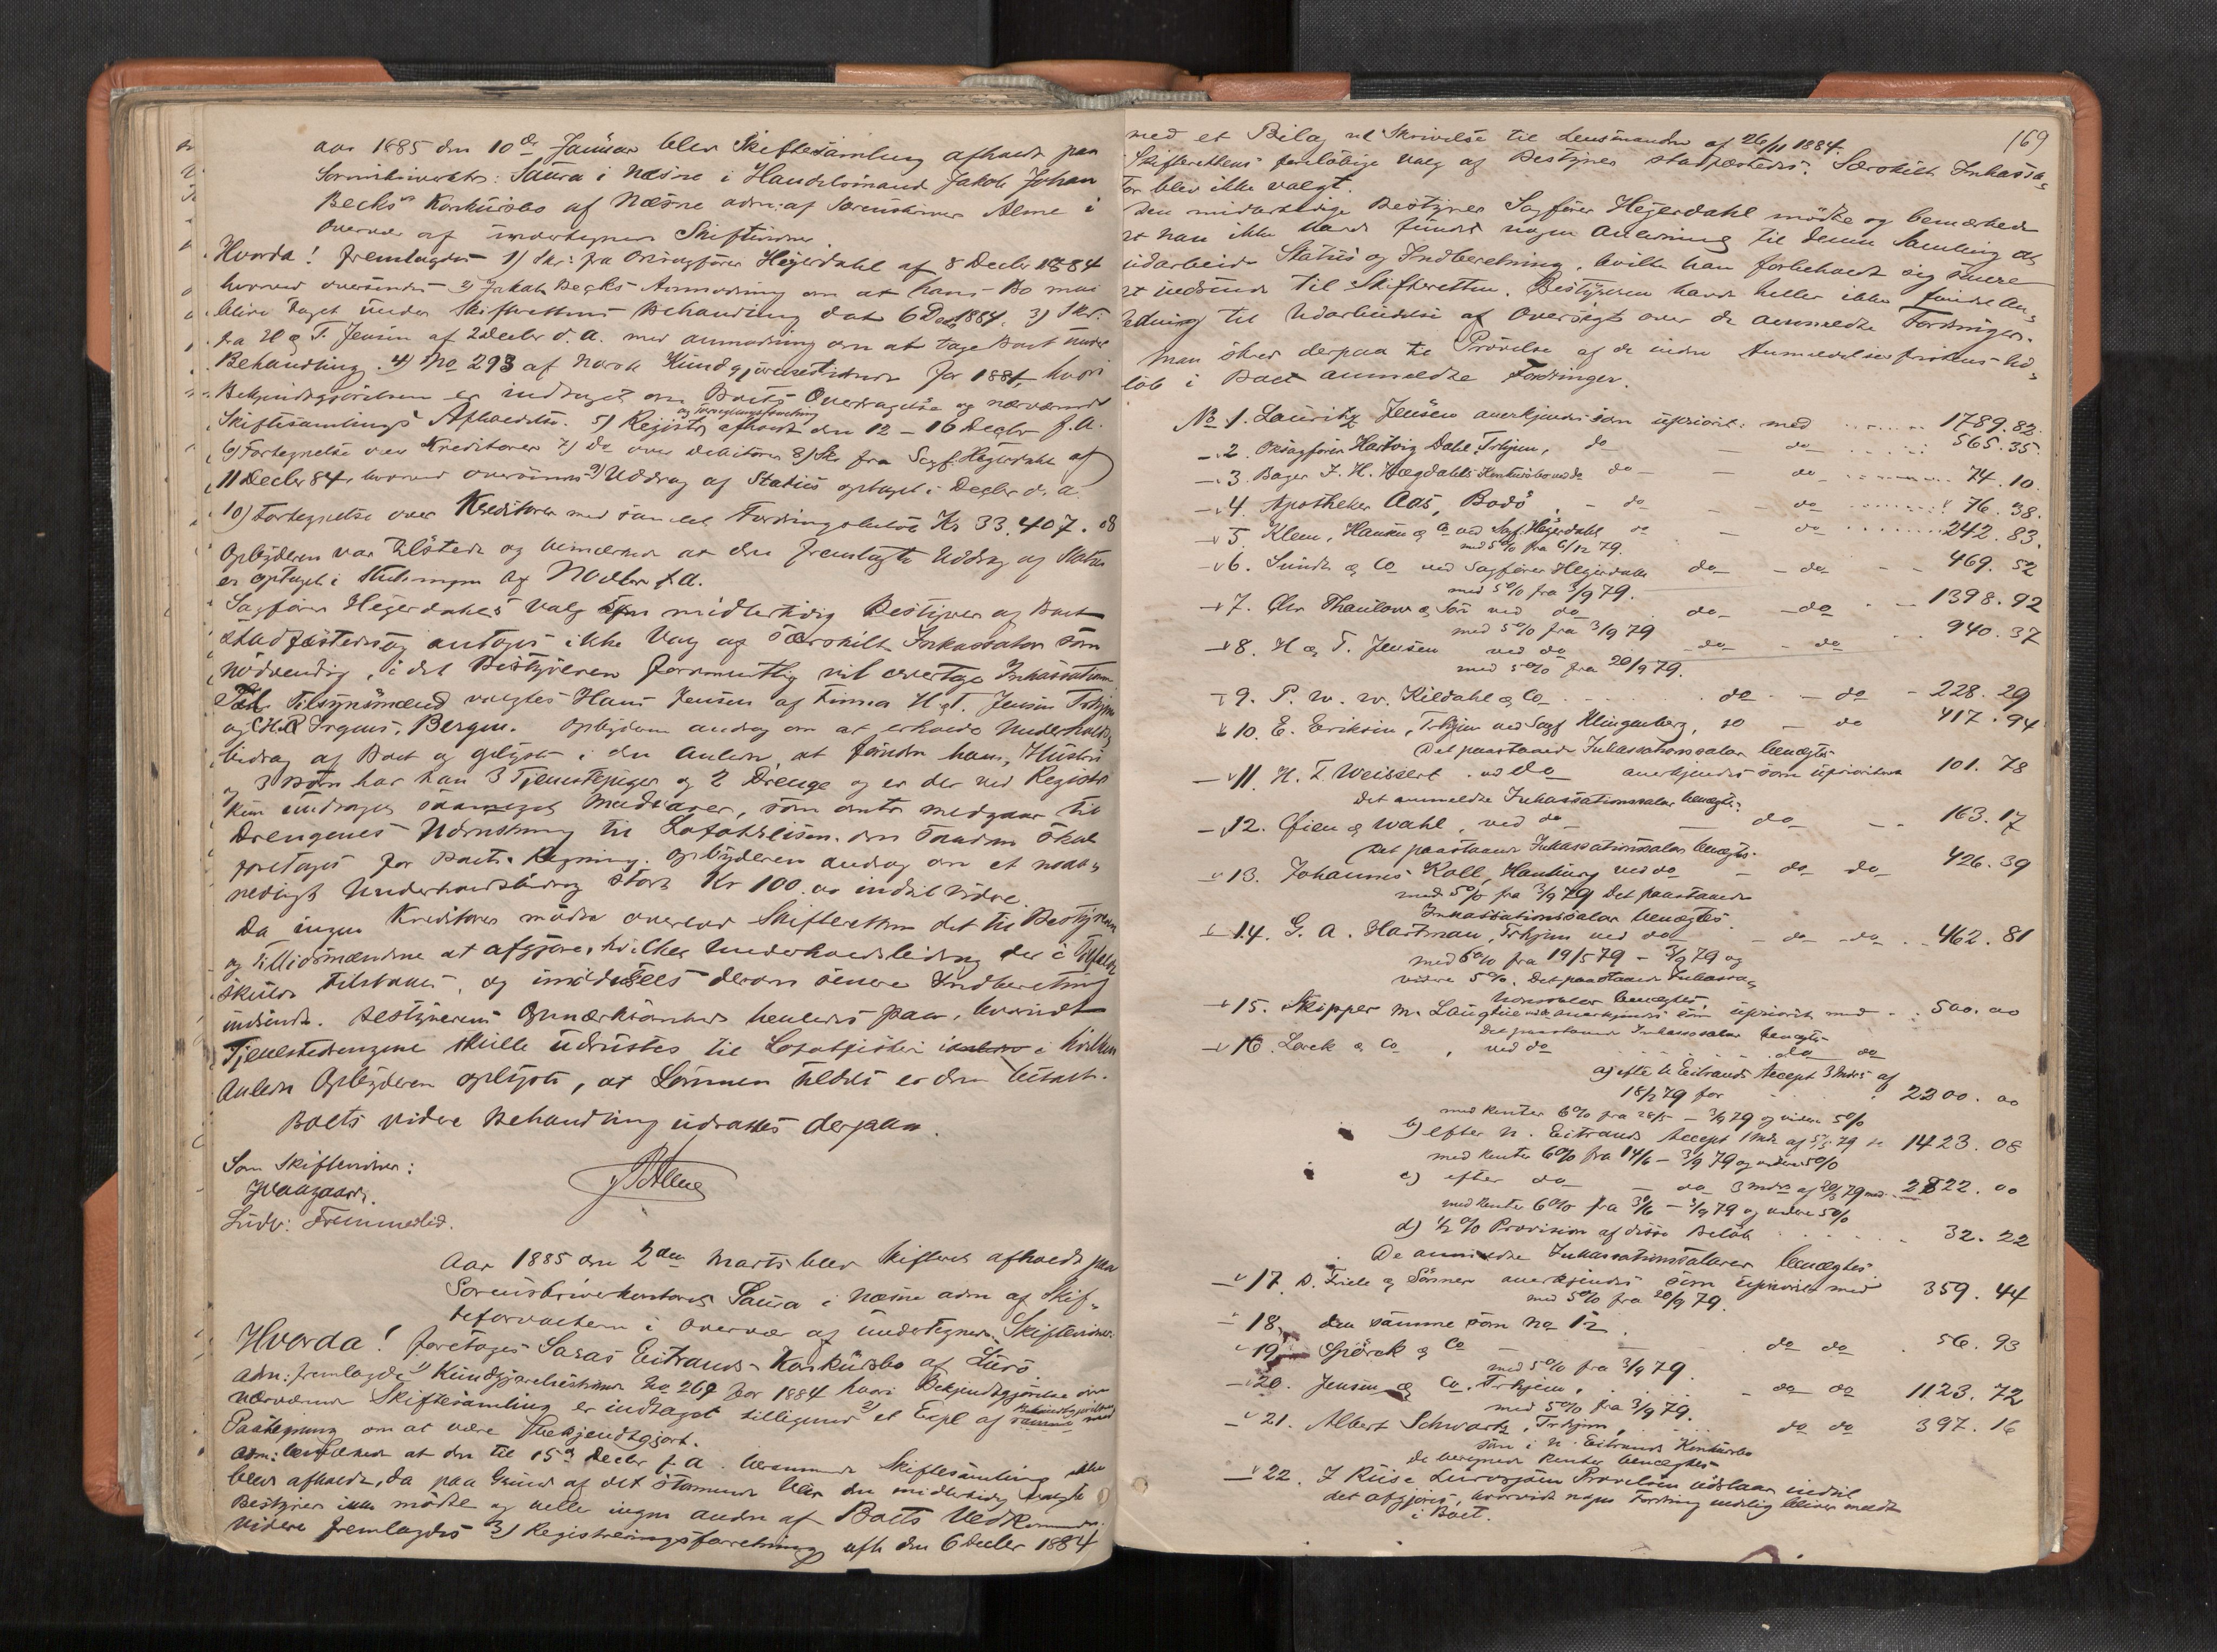 Aar 1885 den 10de Januar blev Skiftesamling afholdt paa
Sorenskriverktr: Saura i Næsne i Handelsmand Jakob Johan
Becks Konkursbo af Næsne adm: af Sorenskriver Alme i
Overvær af undertegnede Skiftevidner.
Hvorda! fremlagdes 1) Skr: fra Orsagfører Heyerdahl af 8 Decbr 1884
hvorved oversendes 2) Jakob Becks Anmodning om at hans Bo maa
blive taget under Skifterettens Behandling dat 6 Decb 1884. 3) Skr:
fra H & T. Jensen af 2 Decbr d. A. med anmodning om at tage Boet under
Behandling. 4) No 293 af Norsk Kundgjørelsestidende for 1884, hvori
Bekjendtgjørelsen er indtaget om Boets Overdragelse og nærværende
og Forseglingsforretning
Skiftesamlings Afholdelse. 5) Registr afholdt den 12 - 16 Decbr f. A.
6) Fortegnelse over Kreditorer 7) Do over Debitorer 8) Skr fra Sagf. Heyerdahl af
11 Decbr 84, hvorved oversendes 9) Uddrag af Status optaget i Decbr d. A.
10) Fortegnelse over Kreditorer med samlet Fordringsbeløb Kr 33.407.08
Opbyderen var tilstede og bemærkede at den fremlagte Uddrag af Status
er optaget i Slutningen af Novbr f. A.
Sagfører Heyerdahls Valg som midlertidig Bestyrer af Boet
stadfæstedes og antoges ikke Valg af særskilt Inkassator som
nødvendig, idet Bestyreren formentlig vil overtage Inkassationen
Til Tilsynsmænd valgtes Hans Jensen af Firma H & T. Jensen Trhjem
og Irgens, Bergen. Opbyderen androg om at erholde Underholds
bidrag af Boet og oplyste i den Anledn. at foruden ham, Hustru
og 3 Børn har han 3 Tjenestepiger og 2 Drenge og er der ved Registr
kun undtaget saameget Madvarer, som antr medgaar til
Drengenes Udrustning til Lofotfiskeri. den saadan skal
foretages for Boets Regning. Opbyderen androg om et maa-
nedligt Underholdsbidrag stort Kr 100.00 indtil videre.
Da ingen Kreditorer mødte overlod Skifteretten det til Bestyreren
og Tillidsmændene at afgjøre, hvilket Underholdsbidrag der i Tilfælde
skulde tilstaaes, og imødesees derom senere Indberetning
indsendt. Bestyrerens Opmærksomhed henledes paa, hvorvidt
Tjenestedrengene skulle udrustes til Lofotfisket i hvilken
Anledn Opbyderen oplyste, at Lønnen tildels er dem betalt.
Boets videre Behandling udsattes derpaa.
Som Skiftevidner:
JAlme
Ludv: Fremmerlid.
Aar 1885 den 2den Marts blev Skifteret afholdt paa
Sorenskriverkontoret Saura i Næsne adm af Skif-
teforvalteren i Overvær af undertegnede Skiftevidner.
Hvorda! foretoges Saras Eitrands Konkursbo af Lurø.
Adm: fremlagde 1) Kundgjørelsestidende No 269 for 1884 hvori Bekjendtgjørelse om
nærværende Skiftesamling er indtaget tilligemed 2) et Expl af Bekjendtgjørelsen med
Paategning om at være bekjendtgjort.
Adm: bemærkede at den til 15de Decbr f A. berammede Skiftesamling ikke
blev afholdt, da paa Grund af det stormende Veir den midlertidig valgte
Bestyrer ikke mødte og heller ingen anden af Boets Vedkommende.
Videre fremlagdes 3) Registreringsforretning afh den 6 Decbr 1884
169
med et Bilag vd Skrivelse til Lensmanden af 26/11 1884.
Skifterettens foreløbige Valg af Bestyrer stadfæstedes. Særskilt Inkassa-
tor blev ikke valgt.
Den midlertidige Bestyrer Sagfører Heyerdahl mødte og bemærkede
at han ikke havde fundet nogen Anledning til denne Samling at
udarbeide Status og Indberetning, hvilke han forbeholdt sig senere
at indsende til Skifteretten. Bestyreren havde heller ikke fundet An-
ledning til Udarbeidelse af Oversigt over de anmeldte Fordringer.
Man skred derpaa til Prøvelse af de inden Anmeldelsesfristens Ud-
løb i Boet anmeldte Fordringer.
No 1. Lauritz Jensen anerkjendes som uprior: med ....... 1789.82.
- 2. Orsagfører Hartvig Dahl, Trhjem, do do ..... 565.35.
- 3. Bager J. H. Hægdahls Konkursbo ved do do - do ..... 74.10.
- 4. Apotheker Aas, Bodø, - do - - do ..... 76.38.
- 5. Klem, Hansen & Co ved Sagf. Heyerdahl do - do ..... 242.83.
med 5% fra 6/12 79.
- 6. Sundt & Co ved Sagfører Heyerdahl do - do - - 469.52
med 5% fra 3/9 79.
- 7. Chr Thaulow & Søn ved do . do - do . - 1398.92
med 5% fra 3/9 79
- 8. H & T. Jensen ved do - do - do . . 940.37
med 5% fra 20/9 79.
- 9. P. W. W. Kildahl & Co . . . . . do . - do - 228.29
- 10. E. Eriksen, Trhjem ved Sagf Klingenberg, do - do 417.94
Det paastaaede Inkassationssalær benegtes
- 11. H. F. Weissert . ved do anerkjendes som uprioriteret 101.78
Det anmeldte Inkassationssalær benegtes.
- 12. Øien & Wahl, ved do - do - - 163.17
Det paastaaede Inkassationssalær benegtes.
- 13. Johannes Kall, Hamburg ved do - do do 426.39
med 5% fra 3/9 79 Det paastaaede
Inkassationssalær benegtes.
- 14. G. A. Hartman, Trhjem ved do - do - do . . 462.81
med 6% fra 19/5 79 - 3/9 79 og
videre 5%. Det paastaaede Inkassa-
tionssalær benegtes.
- 15. Skipper M. anerkjendes som upriorit med . . 500.00
Det paastaaede Inkassosalær benegtes
- 16. Lorck & Co , ved do . . . . . do do
a) efter N Eitrands Accept 3 Mdrs af
18/2 79 for . . . 2200.00
med Renter 6% fra 28/5 - 3/9 79 og videre 5%
b) efter N. Eitrands Accept 1 Mds af 5/5 79 1423.08
med Renter 6% fra 14/6 - 3/9 79 og videre 5%
c) efter do - do 3 Mdrs af 20/3 79 med 2822.00
med Renter 6% fra 30/6 - 3/9 79 og videre 5%
d) 1/2 % Provision af disse Beløb . . . . . 32.22
De anmeldte Inkassationssalærer benegtes
- 17. D. Friele & Sønner anerkjendes som upriorit med 359.44
med 5% fra 20/9 79.
- 18, den samme som No 12.
- 19 Spörck & Co - - do do . 56.93
med 5% fra 3/9 79.
- 20. Jensen & Co. Trhjem, . . . - do do 1123.72
med 5% fra 3/9 79.
- 21. Albert Schwartz, Trhjem, . . . . do do 397.16
som i N. Eitrands Konkursbo
De beregnede Renter benegtes
- 22. J Riise Prøvelsen udstaar indtil
det afgjøres, hvorvidt nogen Fordring endelig bliver anmeldt
i Boet.